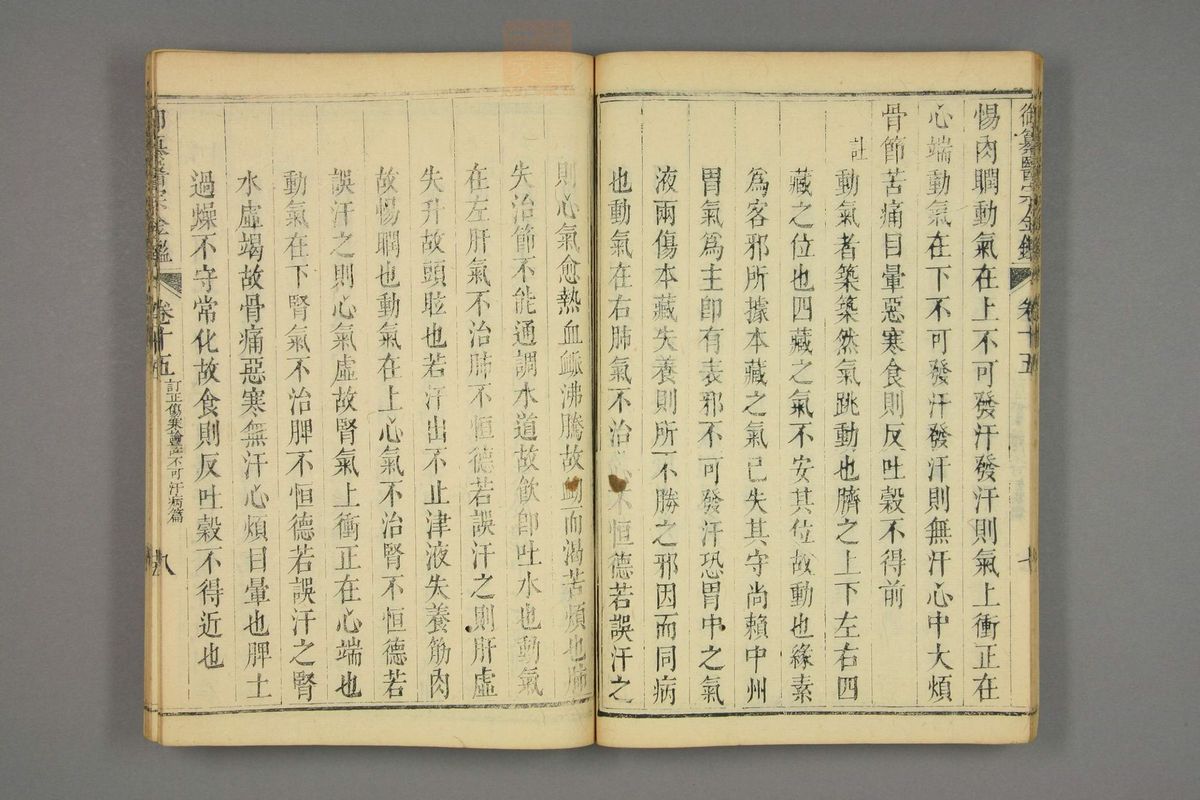 御纂醫宗金鑑 卷十五 七
惕肉瞤動氣在上不可發汗發汗則氣上衝正在
心端動氣在下不可發汗發汗則無汗心中大煩
骨節苦痛目暈惡寒食則反吐穀不得前
註
動氣者築築然氣跳動也臍之上下左右四
藏之位也四藏之氣不安其位故動也緣素
爲客邪所據本藏之氣已失其守尚賴中州
胃氣爲主卽有表邪不可發汗恐胃中之氣
液兩傷本藏失養則所不勝之邪因而同病
也動氣在右肺氣不治 不恒德若誤汗之
則心氣愈熱血衇沸騰故 而渴苦煩也肺
失治節不能通調水道故飮卽吐水也動氣
在左肝氣不治肺不恒德若誤汗之則肝虛
失升故頭眩也若汗出不止津液失養筋肉
故惕瞤也動氣在上心氣不治腎不恒德若
誤汗之則心氣虛故腎氣上衝正在心端也
動氣在下腎氣不治脾不恒德若誤汗之腎
水虛竭故骨痛惡寒無汗心煩目暈也脾土
過燥不守常化故食則反吐穀不得近也
御纂醫宗金鑑 卷十五 訂正傷寒論註不可汗病篇 八